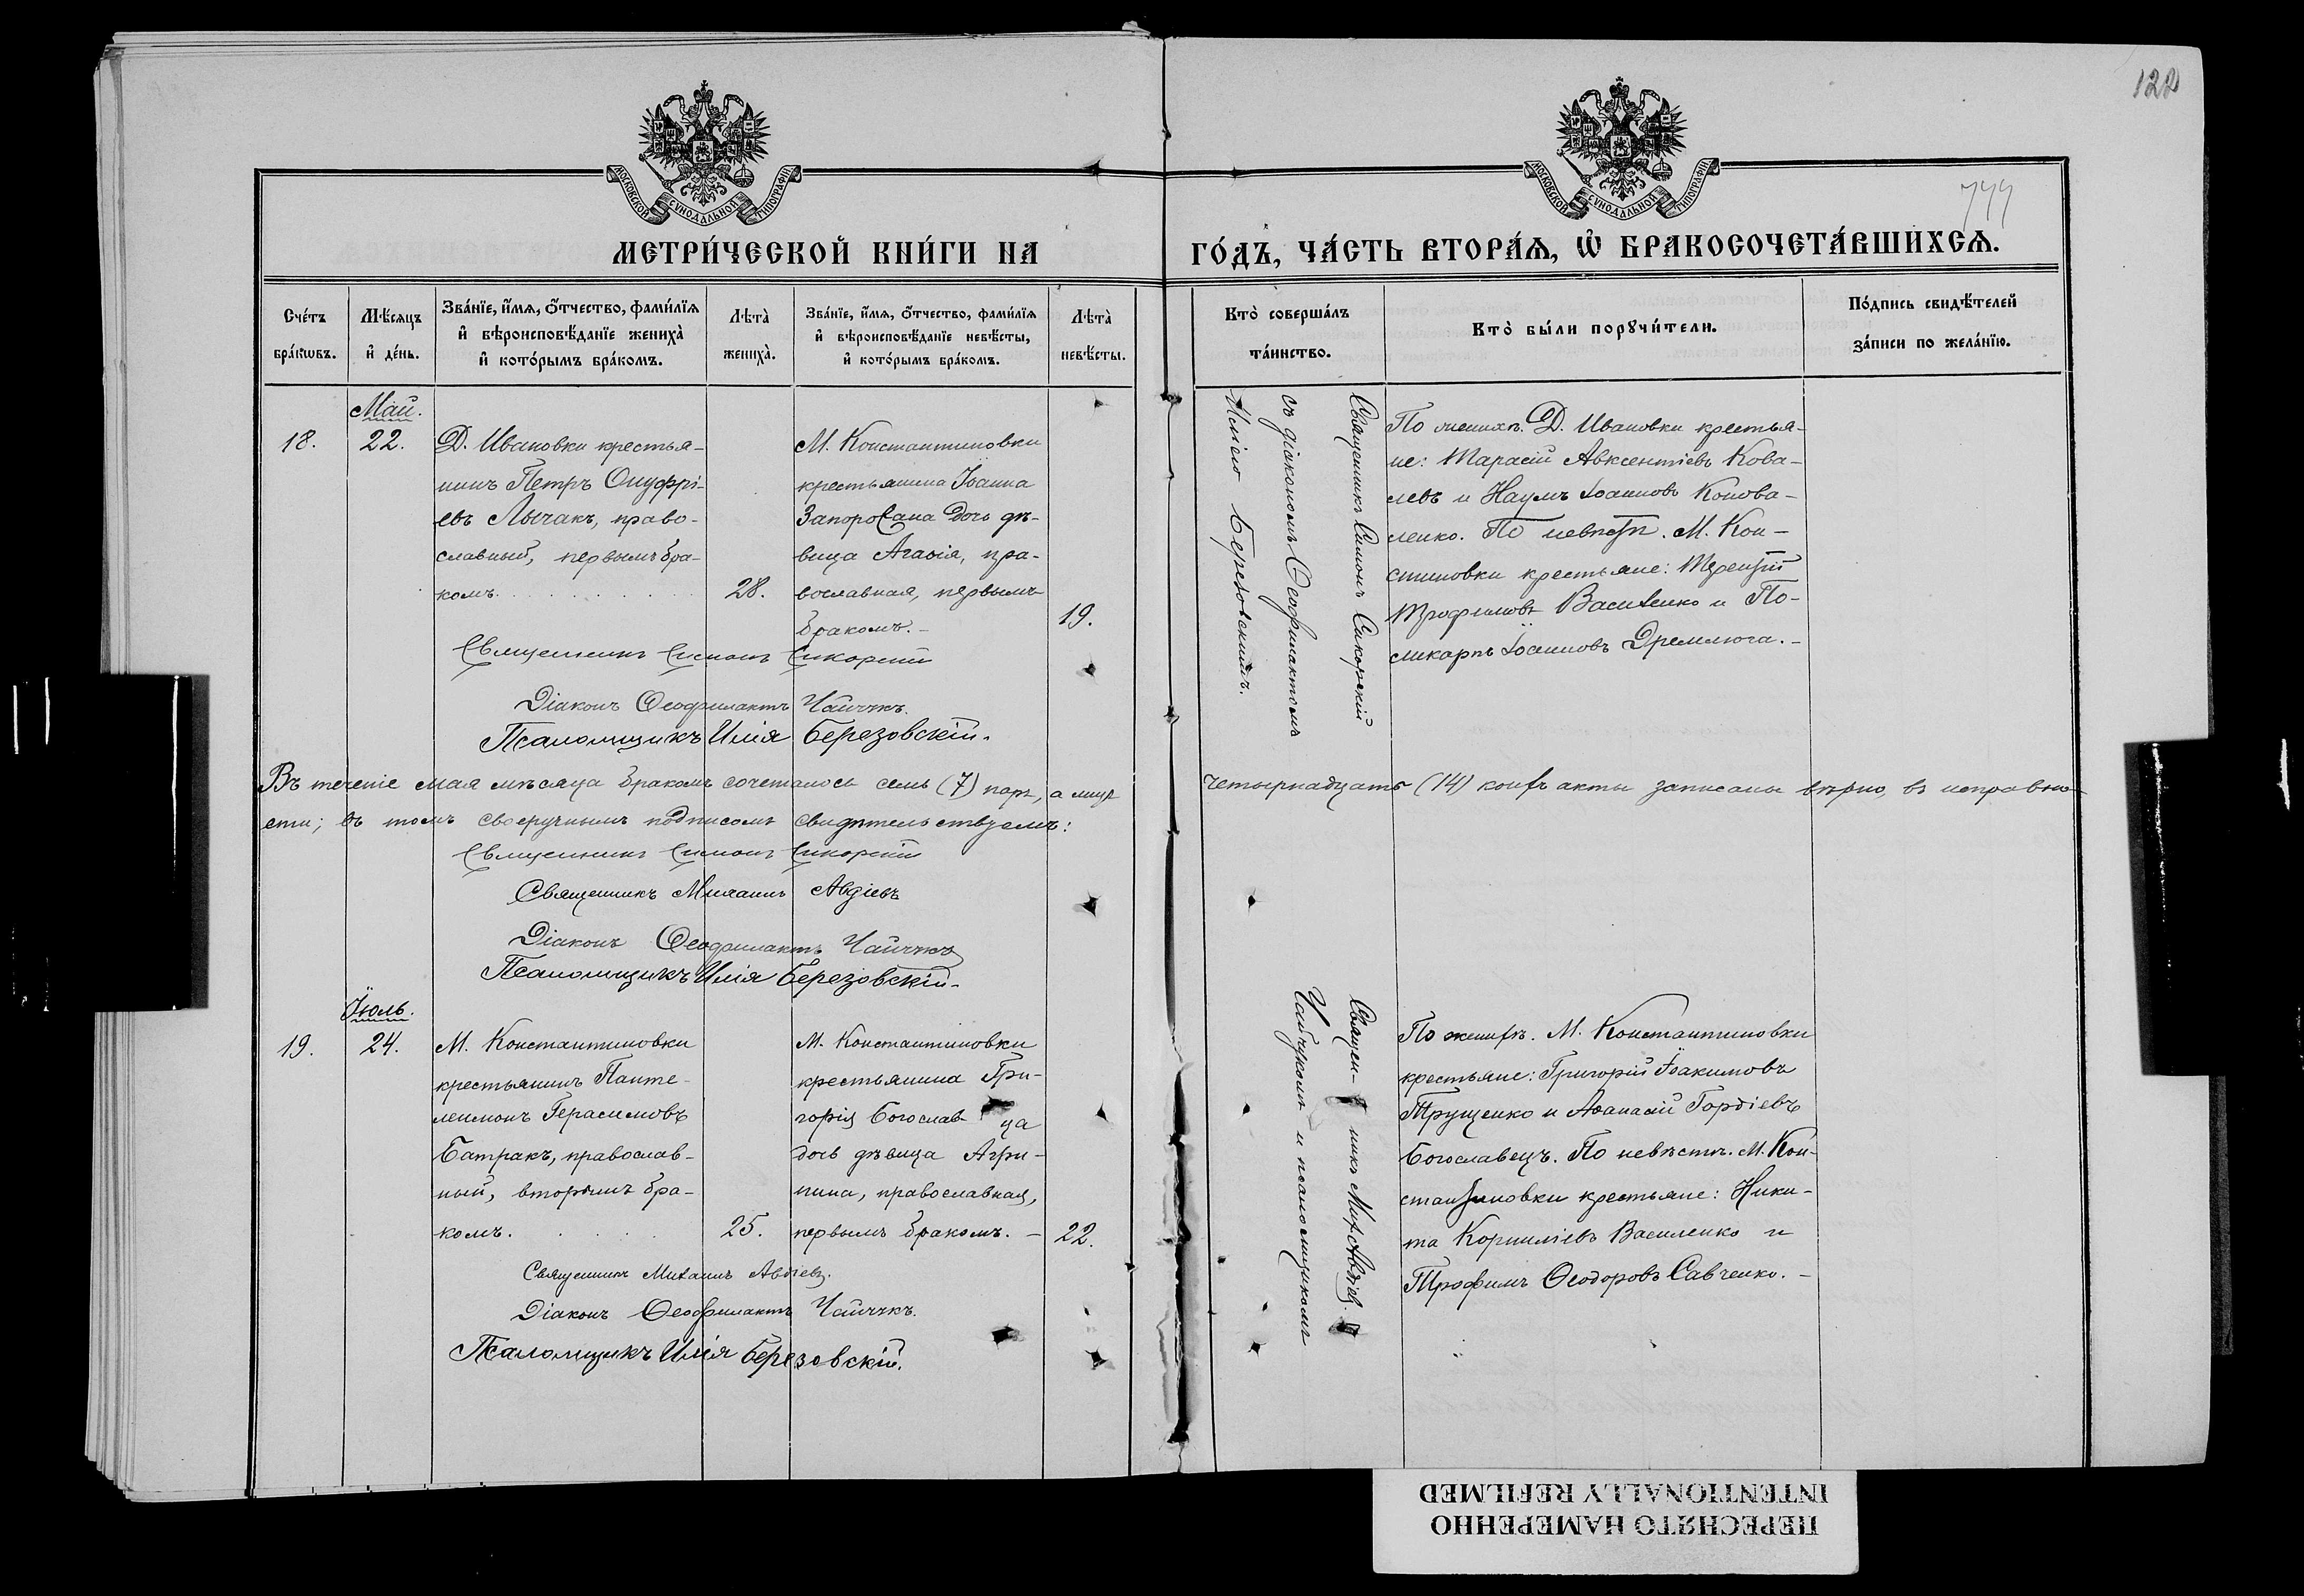 122
799
МОСКОВСКОЙ СѴНОДАЛЬНОЙ ТИПОГРАФІИ
МОСКОВСКОЙ СѴНОДАЛЬНОЙ ТИПОГРАФІИ
МЕТРИ́ЧЕСКОЙ КНИ́ГИ НА
ГО́ДЪ, ЧА́СТЬ ВТОРА́Ѧ, Ѽ БРАКОСОЧЕТА́ВШИХСѦ.
Сче́тъ бра́кѡвъ.
Мѣ́сяцъ и҆ де́нь.
Зва́нїе, и҆́мѧ, ѻ҆́тчество, фами́лїѧ и҆ вѣроисповѣ́данїе жениха̀ и҆ кото́рымъ бра́комъ.
Лѣта̀ жениха̀.
Зва́нїе, и҆́мѧ, ѻ҆́тчество, фами́лїѧ и҆ вѣроисповѣ́данїе невѣ́сты, и҆ кото́рымъ бра́комъ.
Лѣта̀ невѣ́сты.
Кто̀ соверша́лъ та́инство.
Кто̀ бы́ли порꙋчи́тели.
По́дпись свидѣ́телей за́писи по жела́нїю.
Май.
18.
22.
Д. Ивановки крестья-
нинъ Петръ Онуфрі-
евъ Лычакъ, право-
славный, первымъ бра-
комъ.
28.
М. Константиновки
крестьянина Іоанна
Запорожана дочь дѣ-
вица Агафія, пра-
вославная, первымъ
бракомъ. –
19.
Священникъ Симонъ Сикорскій
съ діакономъ Ѳеофилактомъ
Иліею Березовскимъ.
По женихѣ. Д. Ивановки крестья-
не: Тарасій Авксентіевъ Кова-
левъ и Наумъ Іоанновъ Конова-
ленко. По невѣстѣ. М. Кон-
стиновки крестьяне: Терентій
Трофимовъ Василенко и По-
ликарпъ Іоанновъ Дремлюга. –
Священникъ Симонъ Сикорскій
Діаконъ Ѳеофилактъ Чайчукъ.
Псаломщикъ Илія Березовскій.
Въ теченіе мая мѣсяца бракомъ сочеталось семь (7) паръ, а лицъ четырнадцать (14) коихъ акты записаны вѣрно, въ исправно-
сти; въ томъ своеручнымъ подписомъ свидѣтельствуемъ:
Священникъ Симонъ Сикорскій
Священникъ Михаилъ Авдіевъ
Діаконъ Ѳеофилактъ Чайчукъ
Псаломщикъ Илія Березовскій.
Іюль.
19.
24.
М. Константиновки
крестьянинъ Панте-
леимонъ Герасимовъ
Батракъ, православ-
ный, вторымъ бра-
комъ.
25.
М. Константиновки
крестьянина Гри-
горія Богослав- ца
дочь дѣвица Агри-
пина, православная,
первымъ бракомъ. –
22.
Священ- никъ Мих. Авдіев.
Чайчукомъ и псаломщикомъ
По женихѣ. М. Константиновки
крестьяне: Григорій Іоакимовъ
Трущенко и Аѳанасій Гордіевъ
Богославецъ. По невѣстѣ. М. Кон-
стантиновки крестьяне: Ники-
та Корниліевъ Василенко и
Трофимъ Ѳеодоровъ Савченко. –
Священникъ Михаилъ Авдіевъ.
Діаконъ Ѳеофилактъ Чайчукъ.
Псаломщикъ Илія Березовскій.
ПЕРЕСНЯТО НАМЕРЕННО
INTENTIONALLY REFILMED